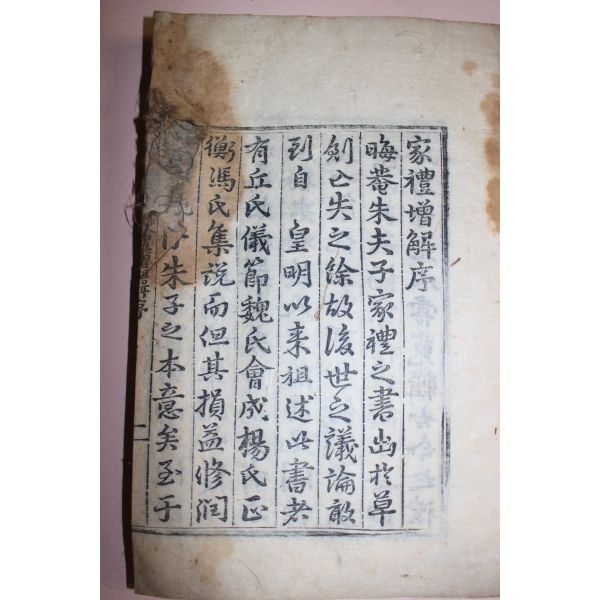 家禮增解序
晦菴朱夫子家禮之書出於草
創亡失之餘故後世之議論敢
到自 皇明以来祖述此書者
有丘氏儀節魏氏會成楊氏正
衡馮氏集說而但其損益修潤
朱子之本意矣至于
序